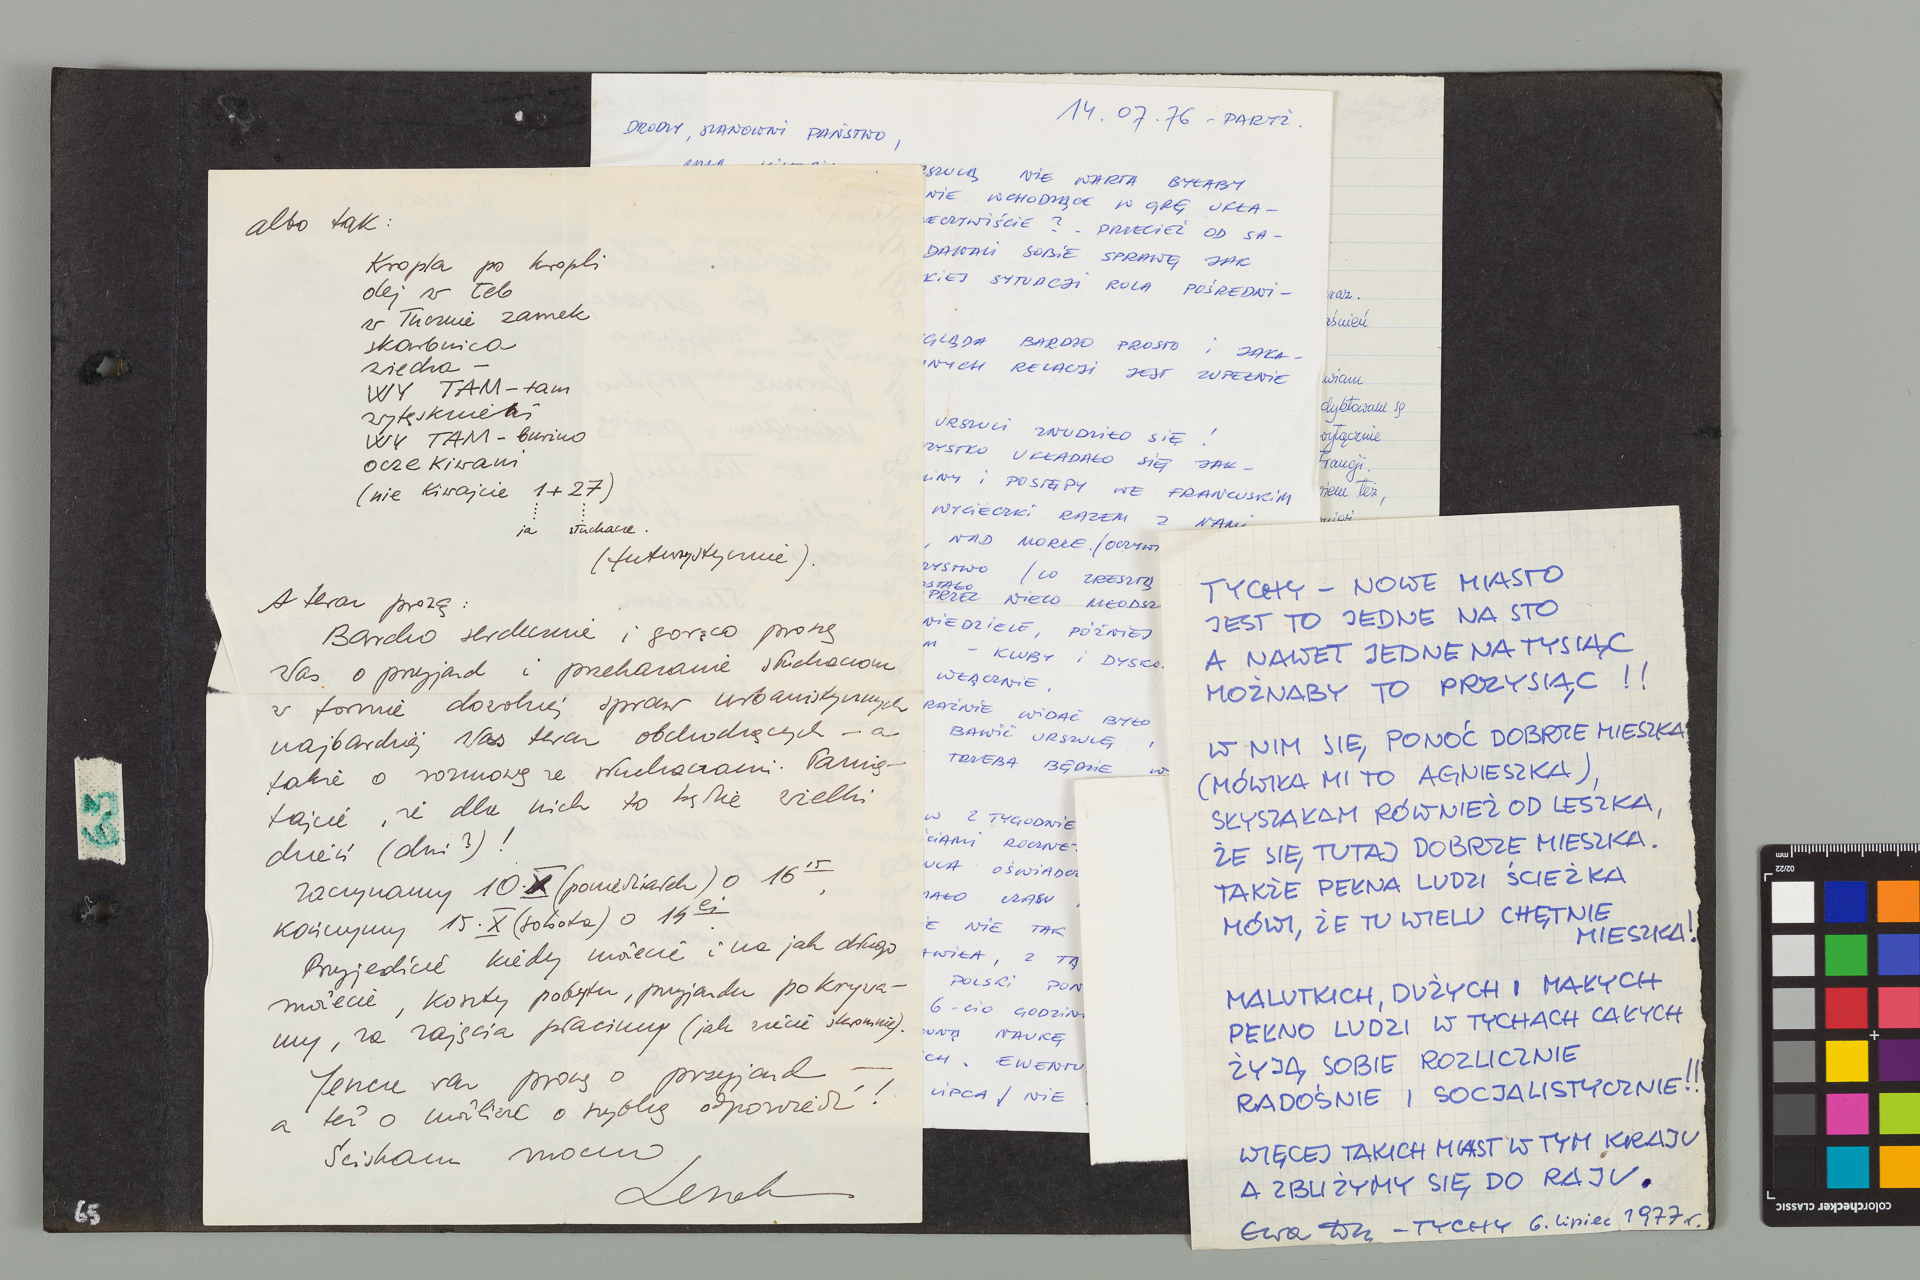 albo tak:
Kropla po kropli
olej w łeb
w tłumie zamek
skarbnica
WY TAM - tam
WY TAM -
oczekiwani
(nie kiwajcie 1+27)
ja słuchacze.
(futurystycznie).
A teraz prozą:
Bardzo serdecznie i gorąco proszę
Was o przyjazd i przekazanie słuchaczom
w formie dowolnej spraw urbanistycznych
najbardziej Was teraz obchodzących - a
także o rozmowę ze słuchaczami. Pamię-
tajcie, że dla nich to będzie wielki
dzień (dni?)!
Zaczynamy 10.X (poniedziałek) o 16 15,
Kończymy 15.X (sobota) o 14 ej
Przyjedźcie kiedy możecie i na jak długo
możecie, koszty pobytu, przyjazdu pokrywa-
my, za zajęcia płacimy (jak wiecie skromnie).
Jeszcze raz proszę o przyjazd -
a też o możliwie o szybką odpowiedź!
Ściskam mocno
Leszek
14.07.76 - PARYŻ.
DRODZY, SZANOWNI PAŃSTWO,
NIE WARTA BYŁABY
NIE WCHODZĄCE W GRĘ UKŁA-
ECZYWIŚCIE? - PRZECIEŻ OD SA-
DAWALI SOBIE SPRAWĘ JAK
KIEJ SYTUACJI ROLA POŚREDNI-
GLĄDA BARDZO PROSTO I JAKA-
NYCH RELACJI JEST ZUPEŁNIE
URSZULI ZNUDZIŁO SIĘ!
ZYSTKO UKŁADAŁO SIĘ JAK-
INY I POSTĘPY WE FRANCUSKIM
WYCIECZKI RAZEM Z NAMI
, NAD MORZE. /OCZYWI
ZYSTWO /CO ZRESZTĄ
OSTAŁO
PRZEZ NIECO MŁODSZ
NIEDZIELE, PÓŹNIEJ
M - KLUBY I DYSKO.
WŁĄCZNIE.
RAŹNIE WIDAĆ BYŁO
BAWIĆ URSZULĘ,
TRZEBA BĘDZIE W
W 2 TYGODNIE
ŚCIAMI ROCZNE
OŚWIADCZ
AŁO CZASU,
E NIE TAK
AWIŁA, Z TĄ
POLSKI PON
6-CIO GODZIN
WNĄ NAUKĘ
CH. EWENTU
LIPCA / NIE
raz.
wiam
dyktowane są
wyłącznie
też,
TYCHY - NOWE MIASTO
JEST TO JEDNE NA STO
A NAWET JEDNE NA TYSIĄC
MOŻNABY TO PRZYSIĄC!!
W NIM SIĘ, PONOĆ DOBRZE MIESZKA
(MÓWIŁA MI TO AGNIESZKA),
SŁYSZAŁAM RÓWNIEŻ OD LESZKA,
ŻE SIĘ TUTAJ DOBRZE MIESZKA.
TAKŻE PEŁNA LUDZI ŚCIEŻKA
MÓWI, ŻE TU WIELU CHĘTNIE
MIESZKA!
MALUTKICH, DUŻYCH I MAŁYCH
PEŁNO LUDZI W TYCHACH CAŁYCH
ŻYJĄ SOBIE ROZLICZNIE
RADOŚNIE I SOCJALISTYCZNIE!!
WIĘCEJ TAKICH MIAST W TYM KRAJU
A ZBLIŻYMY SIĘ DO RAJU.
Ewa - TYCHY 6. lipiec 1977 r.
65
53
mm
02/22
colorchecker CLASSIC